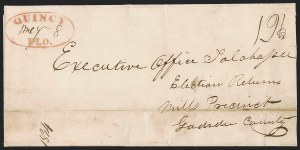 QUINCY
May 8
FLO.
Executive Office Talahassee
Election Returns
Mills Precinct
Gadsden County